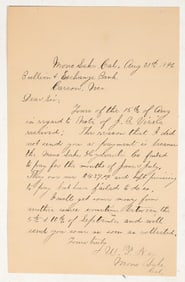 Mono Lake, Cal, Aug 21st, 19
Bullion & Exchange Bank
Carson, Nev
Dear Sir;
Yours of the 15th of Aug
in regard to Note of J. A.
received; The reason that I did
not send you a payment is because
the Mono Lake Co. failed
to pay for the months of June & July.
They owe me and kept promising
to pay but have failed to do so.
I will get some money from
another source sometime between the
5th & 10th of September and will
send you some as soon as collected.
Yours truly
Mono Lake
Cal